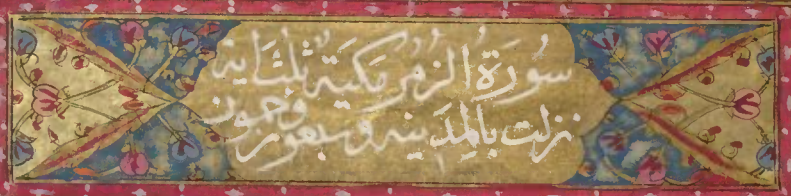 سُورَةُ الزُّمَرِ مَكِّيَة ثلثَ اٰية
نزلت بالمِدَينه وسبعون وخمسون